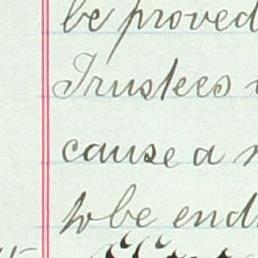 be proved
Trustees
cause a
to be end